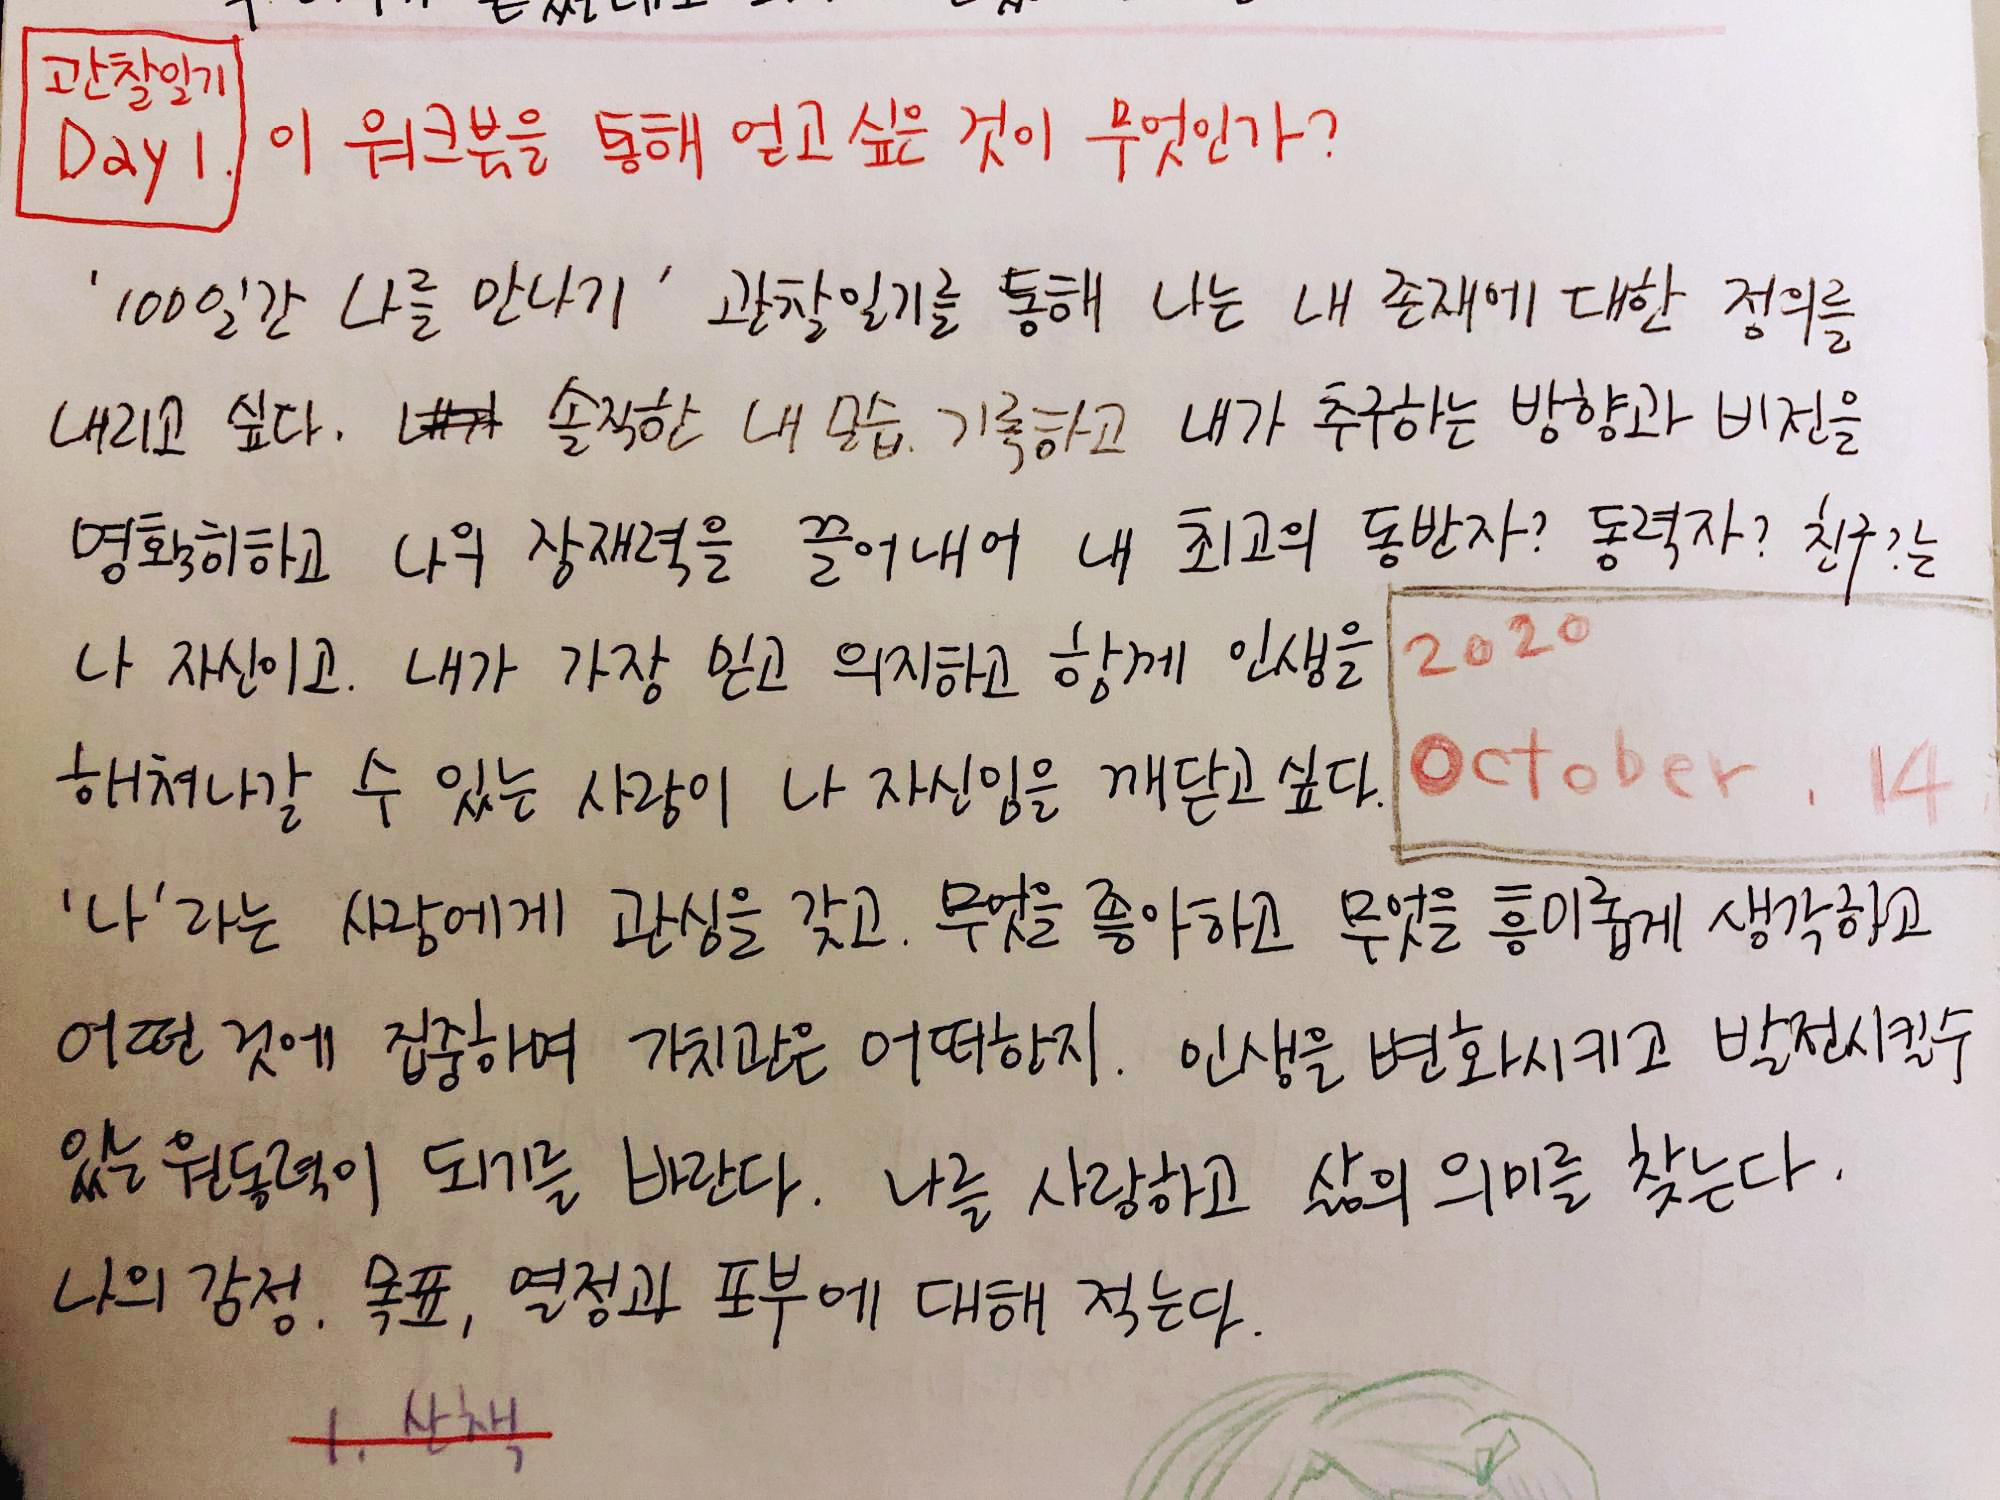 관찰일기
Day 1. 이 워크붂을 통해 얻고 싶은 것이 무엇인가?
'100일간 나를 만나기' 관찰일기를 통해 나는 내 존재에 대한 정의를
내리고 싶다. 솔직한 내 모습. 기록하고 내가 추구하는 방향과 비전을
명확히하고 나의 잠재력을 끌어내어 내 최고의 동반자? 동력자? 친구?는
나 자신이고. 내가 가장 믿고 의지하고 함께 인생을
해쳐나갈 수 있는 사람이 나 자신임을 깨닫고 싶다.
2020
October. 14
'나'라는 사람에게 관심을 갖고. 무엇을 좋아하고 무엇을 흥미롭게 생각하고
어떤 것에 집중하며 가치관은 어떠한지. 인생을 변화시키고 발전시킬수
있는 원동력이 되기를 바란다. 나를 사랑하고 삶의 의미를 찾는다.
나의 감정. 목표, 열정과 포부에 대해 적는다.
1. 산책